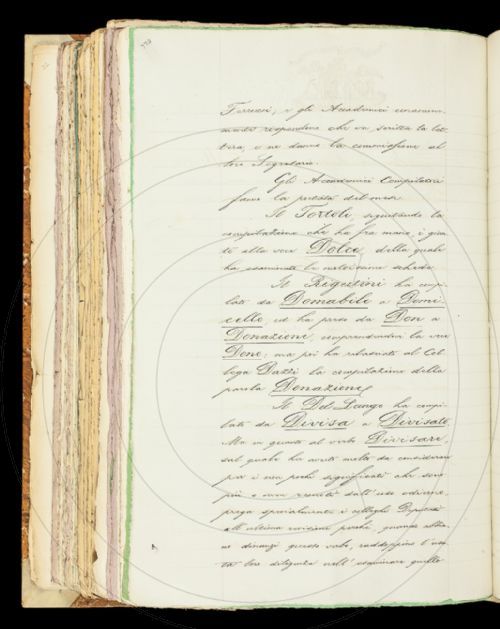 Ferrucci, e gli Accademici unanime-
mente rispondono che va scritta la let-
tera, e ne danno la commissione al
loro Segretario.
Gli Accademici Compilatori
fanno la portata del mese.
Il Tortoli, seguitando la
compilazione che ha fra mano, è giun-
to alla voce Dolce, della quale
ha esaminato le schede.
Il Rigutini ha compi-
lato da Domabile a Domi-
cello, ed ha preso da Don a
Donazione, comprendendovi la voce
Done; ma poi ha rilasciato al Col-
lega Dazzi la compilazione della
parola Donazione.
Il Del Lungo ha compi-
lato da Divisa a Divisato.
Ma in quanto al verbo Divisare,
sul quale ha avuto molto da considerare
per i non pochi significati che sono
più o meno remoti dall'uso odierno,
prega specialmente i colleghi Deputati
all'ultima revisione perché, quando abbia-
no dinanzi questo verbo, raddoppino l'usa-
ta loro diligenza nell'esaminare quello